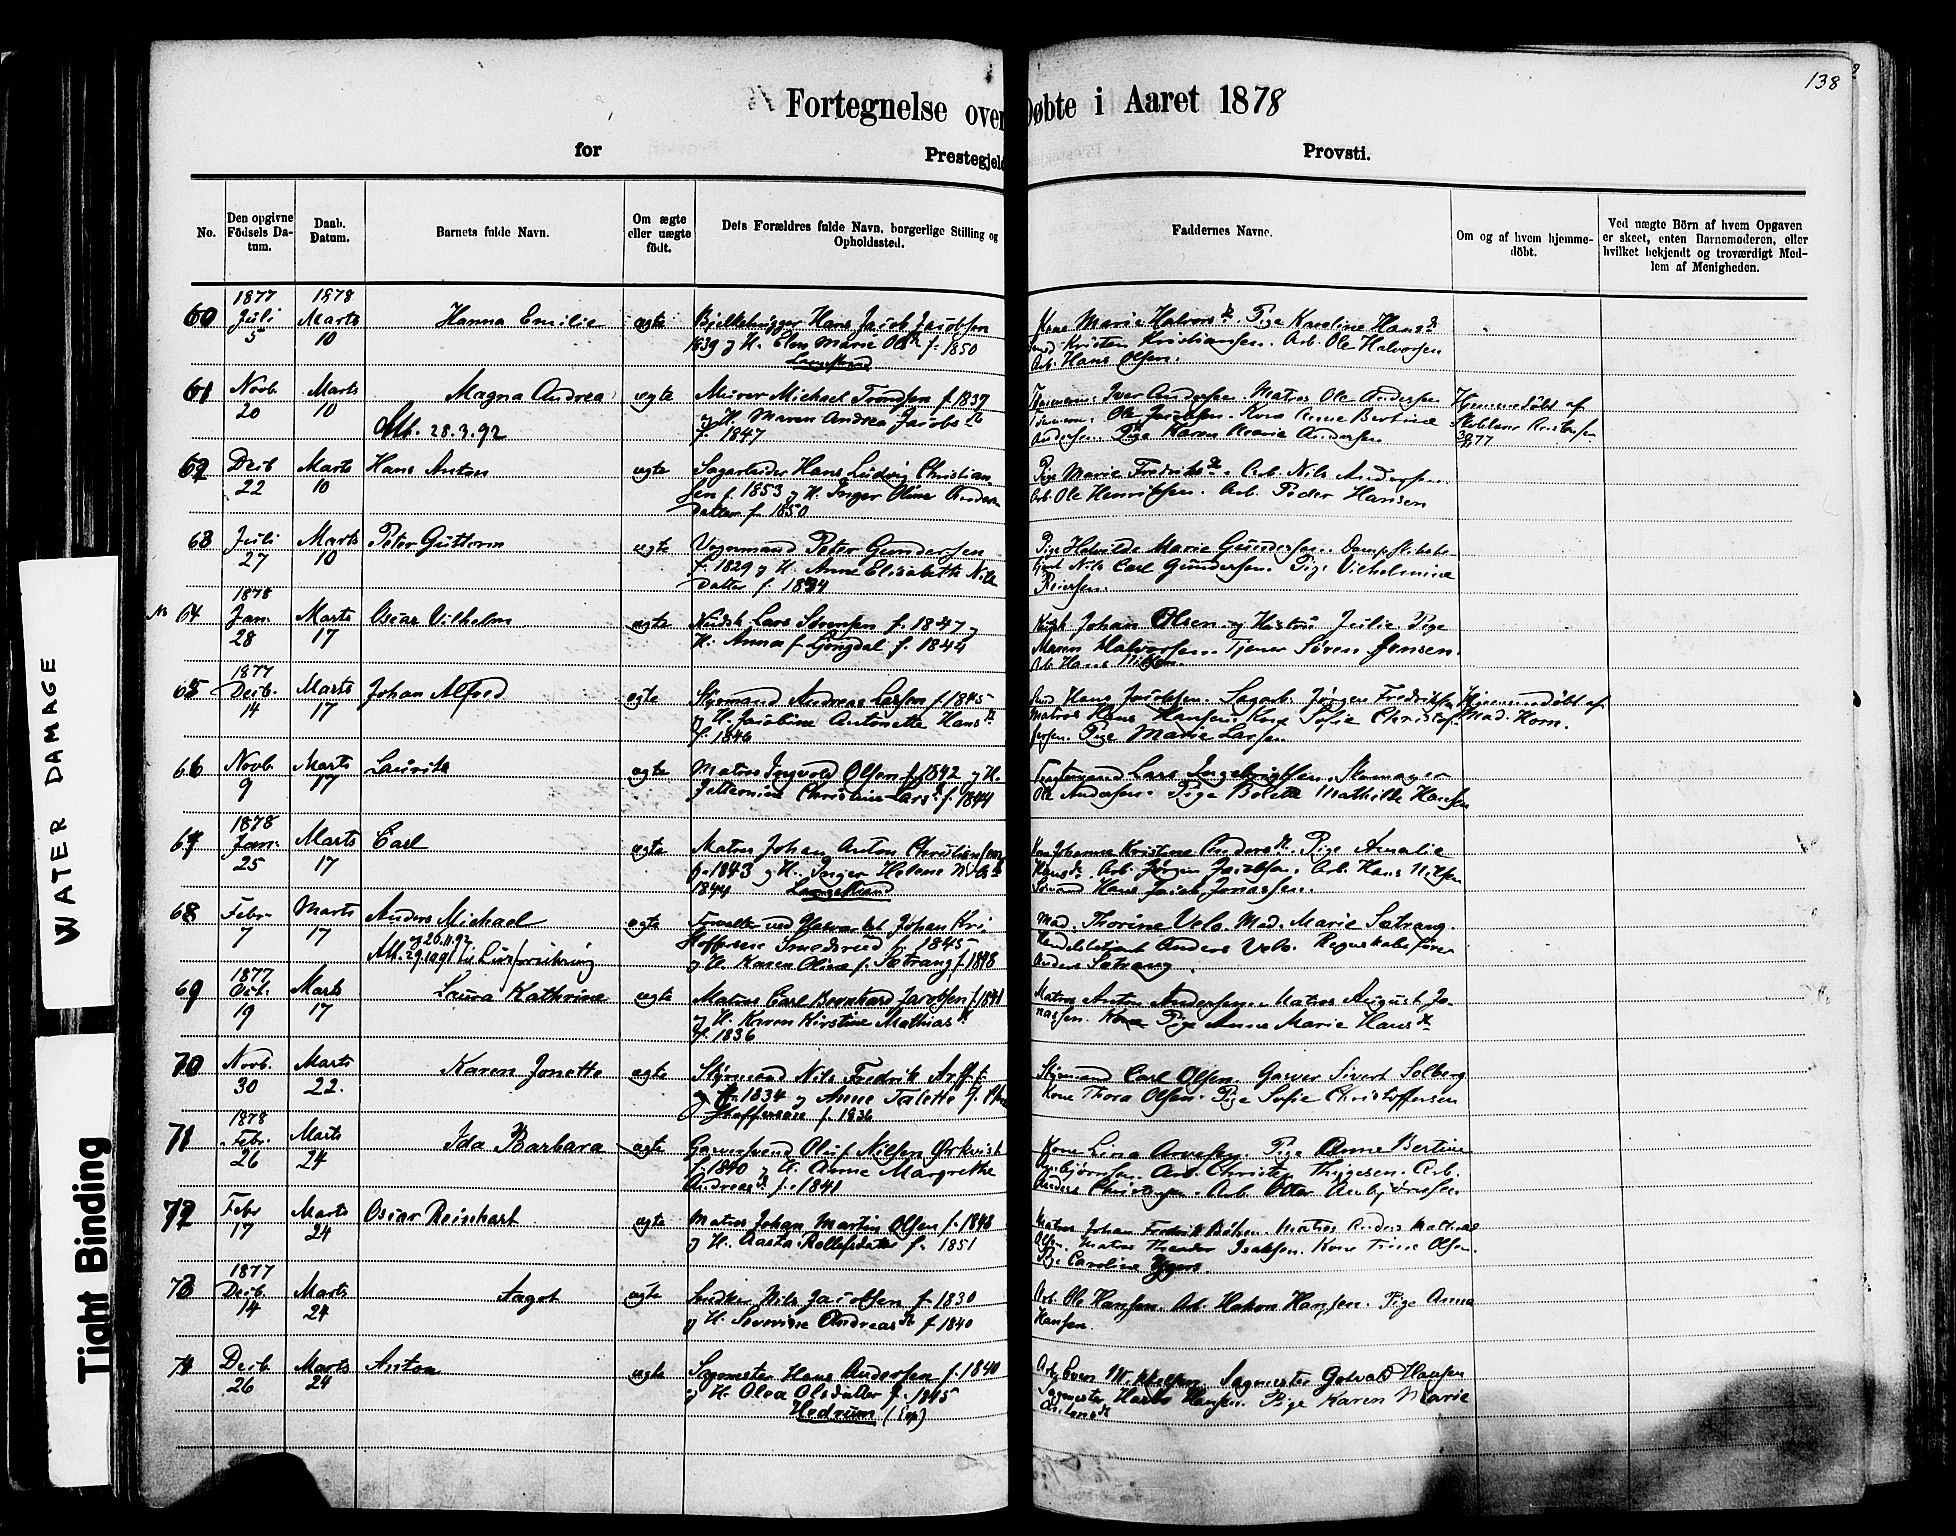 138
Fortegnelse over Døbte i Aaret 1878
for Prestegjeld Provsti.
No.
Den opgivne
Födsels Da-
tum.
Daab.
Datum.
Barnets fulde Navn.
Om ægte
eller uægte
födt.
Dets Forældres fulde Navn, borgerlige Stilling og
Opholdssted.
Faddernes Navne.
Om og af hvem hjemme-
döbt.
Ved uægte Börn af hvem Opgaven
er skeet, enten Barnemoderen, eller
hvilket bekjendt og troværdigt Med-
lem af Menigheden.
60 1877 Juli 5 1878 Marts 10 Hanna Emilie ægte
Bjelkehugger Hans Jacob Jacobsen
1839 og H. Elen Marie Olsd f. 1850
Langestrand
Kone Marie Halvorsd. Pige Karoline Hansd
Kristen Kristiansen. Arb. Ole Halvorsen
Arb. Hans Olsen.
61 Novb. 20 Marts 10 Magna Andrea ægte
Att. 28.3.92
Murer Michael Trondsen f. 1837
og H. Maren Andrea Jacobsd
f. 1847
Iver Andersen. Matros Ole Andersen
Ole Jacobsen. Kone Anne Bertine
Andersen. Pige Karen Marie Andersen
Hjemmedöbt af
62 Decb 22 Marts 10 Hans Anton ægte
Sagarbeider Hans Ludvig Christian-
sen f. 1853 og H. Inger Oline Anders-
datter f. 1850
Pige Marie Fredriksd. Arb. Nils Andersen.
Arb. Ole Henriksen. Arb. Peder Hansen
63 Juli 27 Marts 10 Peter Guttorm ægte
Vognmand Peter Gundersen
f. 1829 og H. Anne Elisabeth Nils-
datter f. 1834
Pige Halvilde Marie Gundersen.
Nils Carl Gundersen. Pige Vilhelmine
Reiersen.
64 1878 Jan. 28 Marts 17 Oscar Vilhelm ægte
Lars Sörensen f. 1847 og
H. Anna f. Ljöngdal f. 1844
Johan Olsen og Hustru Julie. Pige
Maren Halvorsen. Tjener Sören Jensen.
Arb. Hans Nilsen.
65 1877 Decb. 14 Marts 17 Johan Alfred ægte
Styrmand Andreas Larsen f. 1845
og H. Jacobine Antonette Hansd
f. 1846
Hans Jacobsen. Sagarb. Jörgen Fredriksen
Matros Hans Hansen. Kone Sofie Christof-
fersen. Pige Marie Larsen
Hjemmedöbt af
Mad. Horn.
66 Novb. 9 Marts 17 Lauritz ægte
Matros Ingvold Olsen f. 1842 og H.
Christine Larsd. f. 1844
Lars Ingebrigtsen. Skomager
Ole Andersen. Pige Bolette Mathilde Hansen
67 1878 Jan. 25 Marts 17 Carl ægte
Matros Johan Anton Christiansen
f. 1843 og H. Inger Helene
1844 Langestrand
Kone Johanne Kristine Andersd. Pige Amalie
Hansd. Arb. Jörgen Jacobsen. Arb. Hans Nilsen
Sömand Hans Jacob Jonassen.
68 Febr. 7 Marts 17 Anders Michael ægte
Johan Kri-
stoffersen Smedsrud f. 1845
og H. Karen Oline f. Sætrang f. 1848
Mad. Thorine Velo. Mad. Marie Sætrang.
Anders Velo. Regnskabsförer
Anders Sætrang.
69 1877 Oct. 19 Marts 17 Laura Kathrine ægte
Matros Carl Bernhard Jacobsen f. 1841
og H. Karen Kirstine Mathiasd
f. 1836
Matros Anton Andersen. Matros August Jo-
nassen. Pige Anne Marie Hansd
70 Novb. 30 Marts 22. Karen Jonette ægte
Styrmand Nils Fredrik Arff f.
1834 og Anne Talette f.
Styrmand Carl Olsen. Garver Sivert Solberg
Kone Thora Olsen. Pige Sofie Christoffersen
71 1878 Febr. 26 Marts 24 Ida Barbara ægte
Garversvend Oluf Nilsen Örkvist
f. 1840 og H. Anne Margrethe
Andreasd f. 1841
Kone Lina Arvesen. Pige Anne Bertine
Arb. Christen Thygesen. Arb.
Anders Christensen. Arb. Otter Anbjörnsen
72 Febr. 17 Marts 24 Oscar Reinhart ægte
Matros Johan Martin Olsen f. 1848
og H. Aasta Rollefsdatter f. 1851
Matros Johan Fredrik Böhn. Matros Anders Mathias
Olsen. Matros Theodor Isaksen. Kone Trine Olsen.
Pige Caroline
73 1877 Decb. 14 Marts 24 Aagot ægte
Snedker Nils Jacobsen f. 1830
og H. Severine Andreasd f. 1840
Arb. Ole Hansen. Arb. Hakon Hansen. Pige Anna
Hansen.
74 Decb. 26 Marts 24 Anton ægte
Sagmester Hans Andersen f. 1840
og H. Olea Olsdatter f. 1845
Hedrum
Arb. Even Mikkelsen. Sagmester Gotvald Hansen
Sagmester Hansen. Pige Karen Marie
Antonsd
WATER DAMAGE
Tight Binding